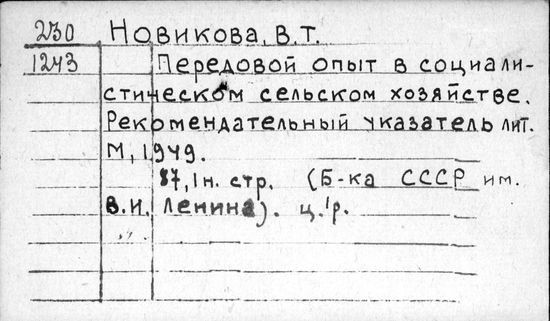 230 Новикова, В.Т.
1243 Передовой опыт в социали-
стическом сельском хозяйстве.
Рекомендательный указатель лит.
М, 1949.
87, 1 н. стр. (Б-ка СССР им.
В.И. Ленина). ц. 1р.